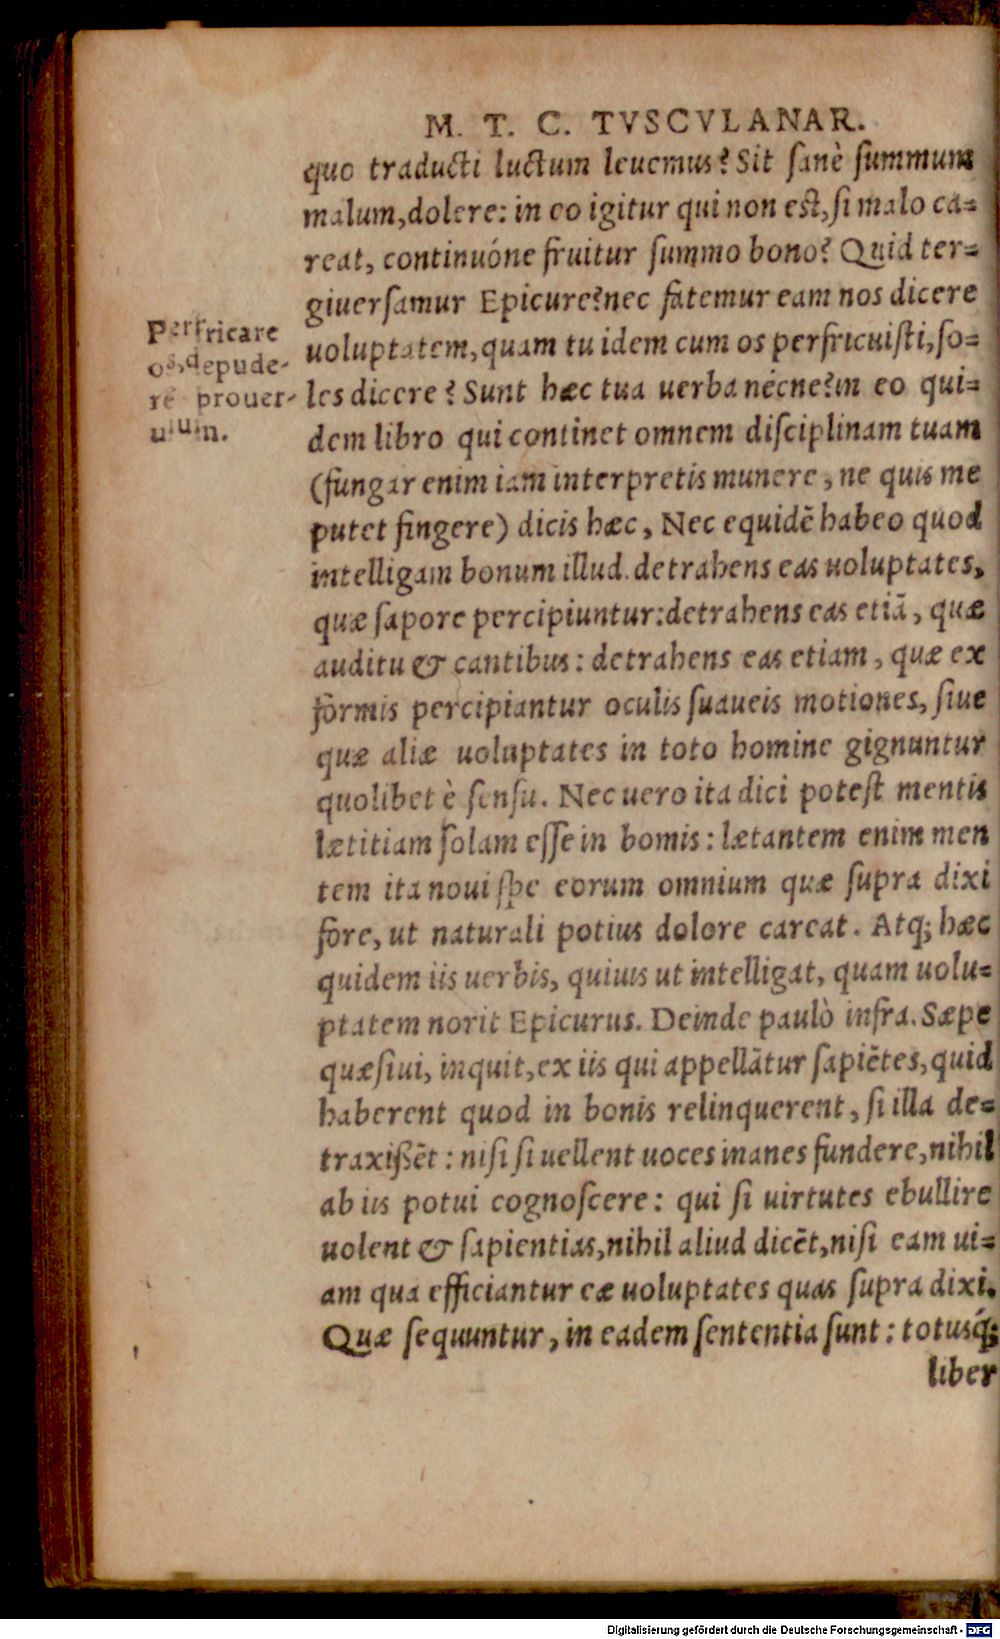 M. T. C. TVSCVLANAR.
quo traducti luctum leuemus? Sit ſanè ſummum
malum, dolere: in eo igitur qui non eſt, ſi malo ca=
reat, continuóne fruitur ſummo bono? Quid ter=
giuerſamur Epicure? nec fatemur eam nos dicere
uoluptatem, quam tu idem cum os perfricuiſti, ſo=
les dicere? Sunt hæc tua uerba nécne? in eo qui=
dem libro qui continet omnem diſciplinam tuam
(fungar enim iam interpretis munere, ne quis me
putet fingere) dicis hæc, Nec equidē habeo quod
intelligam bonum illud. detrahens eas uoluptates,
quæ ſapore percipiuntur: detrahens eas etiā, quæ
auditu & cantibus: detrahens eas etiam, quæ ex
formis percipiantur oculis ſuaueis motiones, ſiue
quæ aliæ uoluptates in toto homine gignuntur
quolibet è ſenſu. Nec uero ita dici poteſt mentis
lætitiam ſolam eſſe in bonis: lætantem enim men
tem ita noui ſpe eorum omnium quæ ſupra dixi
fore, ut naturali potius dolore careat. Atq; hæc
quidem iis uerbis, quiuis ut intelligat, quam uolu=
ptatem norit Epicurus. Deinde paulò infra. Sæpe
quæſiui, inquit, ex iis qui appellātur ſapiētes, quid
haberent quod in bonis relinquerent, ſi illa de=
traxißēt: niſi ſi uellent uoces inanes fundere, nihil
ab iis potui cognoſcere: qui ſi uirtutes ebullire
uolent & ſapientias, nihil aliud dicēt, niſi eam ui=
am qua efficiantur eæ uoluptates quas ſupra dixi.
Quæ ſequuntur, in eadem ſententia ſunt: totusq́;
liber
Perfricare
os, depude-
re prouer-
uium.
Digitalisierung gefördert durch die Deutsche Forschungsgemeinschaft - DFG